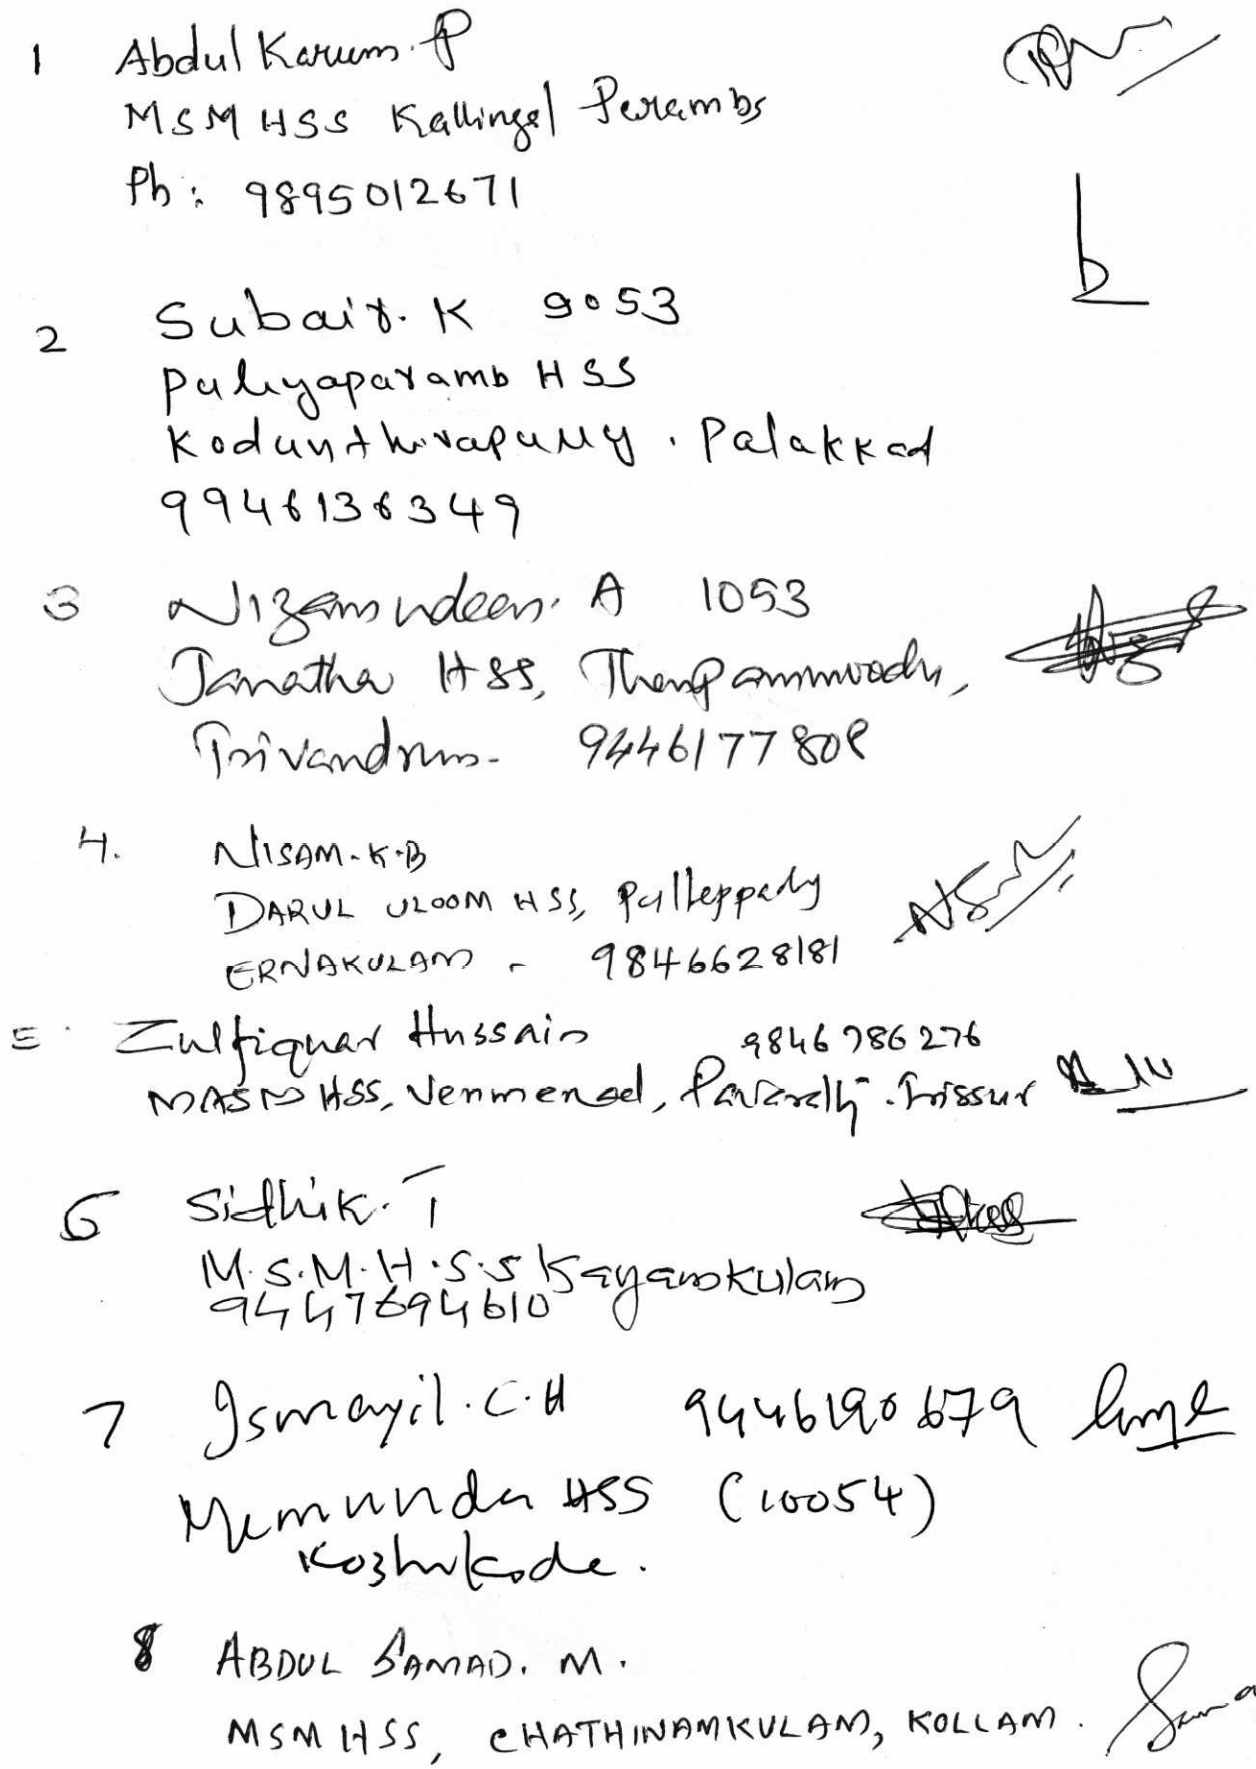 1 Abdul Karum. P
MSM HSS Kallingal Perambs
Ph: 9895012671
2 Subair. K 9053
Puliyaparamb HSS
Kodunthirapully. Palakkad
9946136349
3 Nizamudeen. A 1053
Janatha HSS, Thempammoodu,
Trivandrum. 9446177808
4. NISAM. K.B
DARUL ULOOM HSS, Pulleppady
ERNAKULAM - 9846628181
5. Zulfiquar Hussain 9846786276
MASM HSS, Venmenad, Pavaratty. Trissur
6 Sidhik. T
M.S.M.H.S.S Kayamkulam
9447694610
7 Ismayil. C.H 9446190679
Memunda HSS (10054)
Kozhikode.
8 ABDUL SAMAD. M.
MSM HSS, CHATHINAMKULAM, KOLLAM.